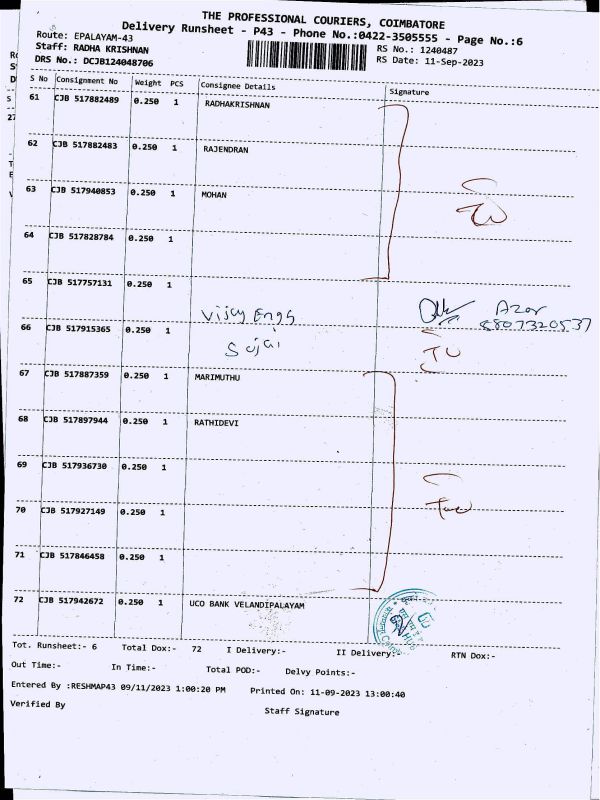 THE PROFESSIONAL COURIERS, COIMBATORE
Delivery Runsheet - P43 - Phone No.:0422-3505555 - Page No.:6
Route: EPALAYAM-43
RS No.: 1240487
Staff: RADHA KRISHNAN
RS Date: 11-Sep-2023
DRS No.: DCJB124048706
S No Consignment No Weight PCS Consignee Details Signature
61 CJB 517882489 0.250 1 RADHAKRISHNAN
62 CJB 517882483 0.250 1 RAJENDRAN
63 CJB 517940853 0.250 1 MOHAN
64 CJB 517828784 0.250 1
65 CJB 517757131 0.250 1 Vijay Engs Azar
8807320537
66 CJB 517915365 0.250 1 Sujai
67 CJB 517887359 0.250 1 MARIMUTHU
68 CJB 517897944 0.250 1 RATHIDEVI
69 CJB 517936730 0.250 1
70 CJB 517927149 0.250 1
71 CJB 517846458 0.250 1
72 CJB 517942672 0.250 1 UCO BANK VELANDIPALAYAM
Tot. Runsheet:- 6 Total Dox:- 72 I Delivery:- II Delivery:- RTN Dox:-
Out Time:- In Time:- Total POD:- Delvy Points:-
Entered By :RESHMAP43 09/11/2023 1:00:20 PM Printed On: 11-09-2023 13:00:40
Verified By Staff Signature